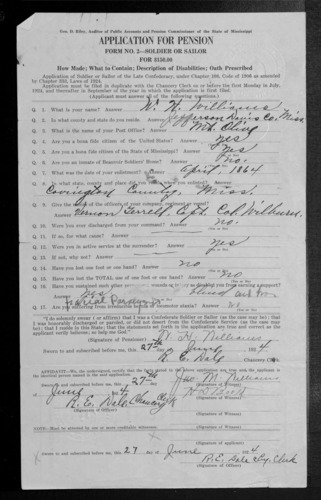 Geo. D. Riley, Auditor of Public Accounts and Pension Commissioner of the State of Mississippi
APPLICATION FOR PENSION
FORM NO. 2—SOLDIER OR SAILOR
FOR $150.00
How Made; What to Contain; Description of Disabilities; Oath Prescribed
Application of Soldier or Sailor of the Late Confederacy, under Chapter 109, Code of 1906 as amended
by Chapter 205, Laws of 1924.
Application must be filed in duplicate with the Chancery Clerk on or before the first Monday in July,
1924, and thereafter in September of the year in which the application is first filed.
(Applicant must answer all of the following questions.)
Q. 1. What is your name? Answer W. H. Williams
Q. 2. In what county and state do you reside. Answer Jefferson Davis Co. Miss
Q. 3. What is the name of your Post Office? Answer Mt. Olive
Q. 4. Are you a bona fide citizen of the United States? Answer yes
Q. 5. Are you a bona fide citizen of the State of Mississippi? Answer yes
Q. 6. Are you an inmate of Beauvoir Soldiers' Home? Answer no.
Q. 7. What was the date of your enlistment? Answer April, 1864
Q. 8. In what state, county and place did you reside when you enlisted? Answer
Covington County, Miss.
Q. 9. Give the names of the officers of your company, regiment or vessel?
Answer Vernon Terrell, Capt. Col. Wilburn.
Q. 10. Were you ever discharged from your command? Answer no.
Q. 11. If so, for what cause? Answer
Q. 12. Were you in active service at the surrender? Answer yes
Q. 13. If not, why not? Answer
Q. 14. Have you lost one foot or one hand? Answer no
Q. 15. Have you lost the TOTAL use of one foot or one hand? Answer no
Q. 16. Have you sustained such other wounds
Answer yes
Q. 17. Are you suffering from
"I do solemnly swear (or affirm) that I was a Confederate Soldier or Sailor (as the case may be); that
I was honorably discharged or paroled, or did not desert from the Confederate Service (as the case may
be); that I reside in this State; that the statements set forth in the application are true and correct as the
applicant verily believes; so help me God."
(Signature of Pensioner) W. H. Williams
Sworn to and subscribed before me, this 27th day of June, 1924
R. E. Dale Chancery Clerk
(Signature of Witness)
Sworn to and subscribed before me, this 27th
day of June 1924
R. E. Dale, Chancery Clerk
(Signature of Officer)
(Signature of Witness)
(Signature of applicant)
(Signature of Witness)
Sworn to and subscribed before me this 27 day of June 1924
R. E. Dale Chy. Clerk